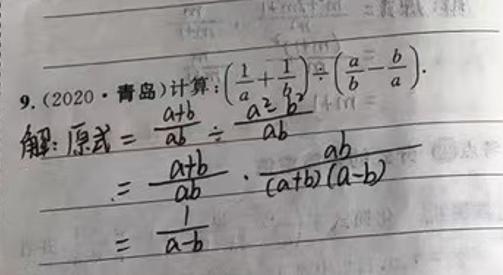 9.(2020·青岛)计算:(1/a+1/b)÷(a/b-b/a).
解:原式=(a+b)/ab÷(a²-b²)/ab
=(a+b)/ab·ab/(a+b)(a-b)
=1/(a-b)